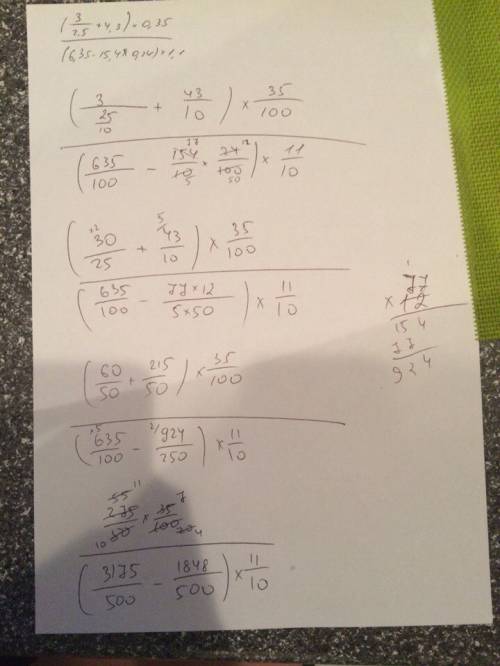 ( 3/2,5 + 4,3 ) × 0,35
(6,35 - 15,4 × 0,24) × 1,1
( 3/(25/10) + 43/10 ) × 35/100
( 635/100 - 154/10 × 24/100 ) × 11/10
77 12
5 50
( 30/25 + 43/10 ) × 35/100
×2 5
( 635/100 - 77×12/5×50 ) × 11/10
1
77
× 12
15 4
77
924
( 60/50 + 215/50 ) × 35/100
( 635/100 - 924/250 ) × 11/10
×5 2/
55 11
275/50 × 35/100
7
10 20 4
( 3175/500 - 1848/500 ) × 11/10